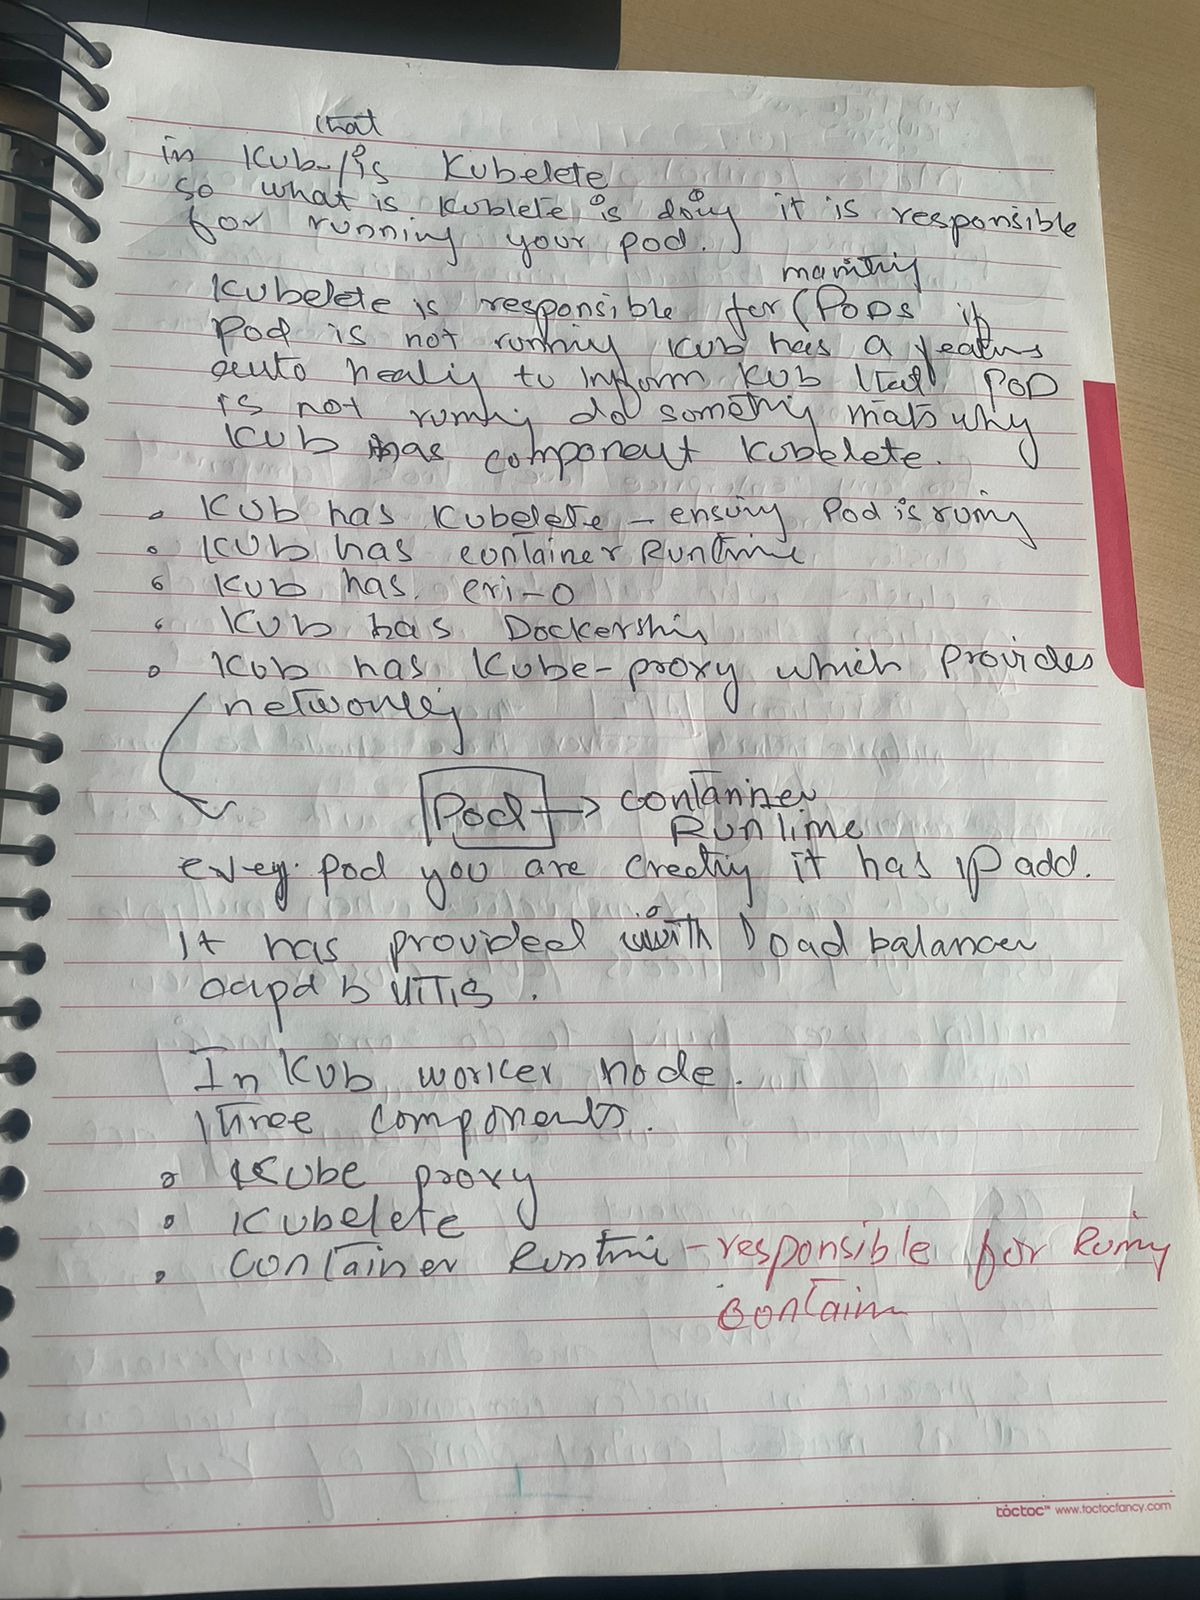 that
in Kub-/is Kubelete
so what is Kublete is doiy it is responsible
for running your pod.
Kubelete is responsible for (PODS if
pod is not runniy Kub has a
auto healiy to Inform Kub that POD
is not do somethiy why
Kub has component Kubelete.
Kub has Kubelete - ensuiy Pod is
Kub has container Runtime
Kub has. cri-o
Kub has Dockershim
Kub has Kube-proxy which provides
Pod → container
Runtime
pod you are creatiy it has IP add.
It has provided with load balancer
In Kub worker node.
three components.
Kube proxy
Kubelete
container - responsible for
toctoc™ www.toctocfancy.com